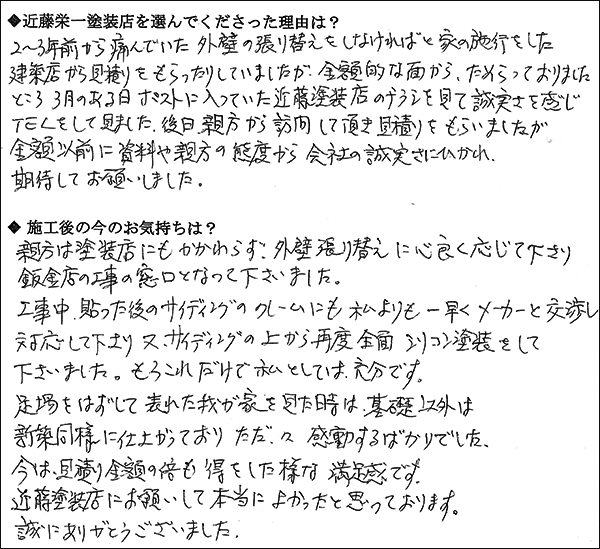 ◆近藤栄一塗装店を選んでくださった理由は？
2〜3年前から痛んでいた外壁の張り替えをしなければと家の施行をした
建築店から見積りをもらったりしていましたが、金額的な面から、ためらっておりました
ところ 3月のある日 ポストに入っていた近藤塗装店のチラシを見て誠実さを感じ
TELをして見ました。後日、親方から訪問して頂き見積りをもらいましたが
金額以前に資料や親方の態度から会社の誠実さにひかれ、
期待してお願いしました。
◆ 施工後の今のお気持ちは？
親方は塗装店にもかかわらず、外壁張り替えに心良く応じて下さり
鈑金店の工事の窓口となって下さいました。
工事中、貼った後のサイディングのクレームにも私よりも一早くメーカーと交渉し
対応して下さり又、サイディングの上から再度全面シリコン塗装をして
下さいました。もうこれだけで私としては、充分です。
足場をはずして表れた我が家を見た時は、基礎以外は
新築同様に仕上がっており ただ々感動するばかりでした。
今は、見積り金額の倍も得をした様な満足感です。
近藤塗装店にお願いして本当によかったと思っております。
誠にありがとうございました。